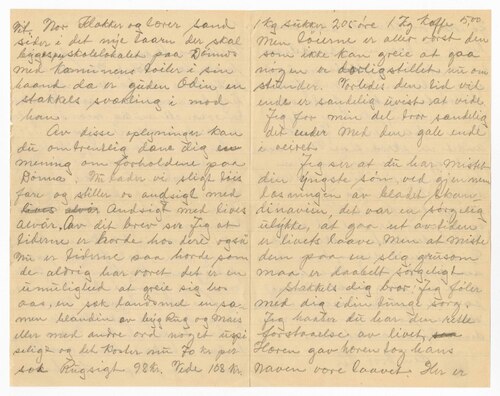 vit. Nor Flakker og lover sand
sider i det nye Taarn der skal
bygges paa skolelokalet paa Dønna
med Kommunens toiler i sin
haand da er guden Odin en
stakkels svækling i mod
han.
Av disse oplysninger kan
du omtrentlig dane dig en
mening om forholdene paa
Dønna. Nu lader vi sligt tøis
fare og stiller os andsigt med
Andsigt med lives
Alvår, Av dit brev ser jeg at
tiderne er horde hos dere også
Nu er tiderne paa horde som
de aldrig har voret det er en
umulighed at greie sig bo
aas, en sæk handmel en sa-
men blandin av byg Rug og Mais
eller med andre ord noget uspi
seligt og det Koster nu 70 kr per
sæk Rugsigt 98 kr. Vede 108 kr.
1 kg sukker 205 øre 1 kg kaffe 5,00
Men løierne er aller vorst den
som ikke kan greie at gaa
nogen er dorligstillet nu om
stunder. Vorledes den tid vil
ende er sandelig uvist at vide.
Jeg for min del tror sandelig
det ender Med den gale ende
i veiret.
Jeg ser at du har Mistet
din yngste søn, ved gjennem
lasningen av bladet Skan-
dinavien, det var en sørgelig
ulykke, at gaa ut av tiden
er livets laave. Men at miste
dem paa en slig grusom
maa er daabelt sørgeligt
Stakkels dig bror! Jeg føler
med dig i din tunge sorg.
Jeg haaber du har den rette
forstaaelse av livet,
Hæren gav hæren tog hans
Navn vore laavet. Her er